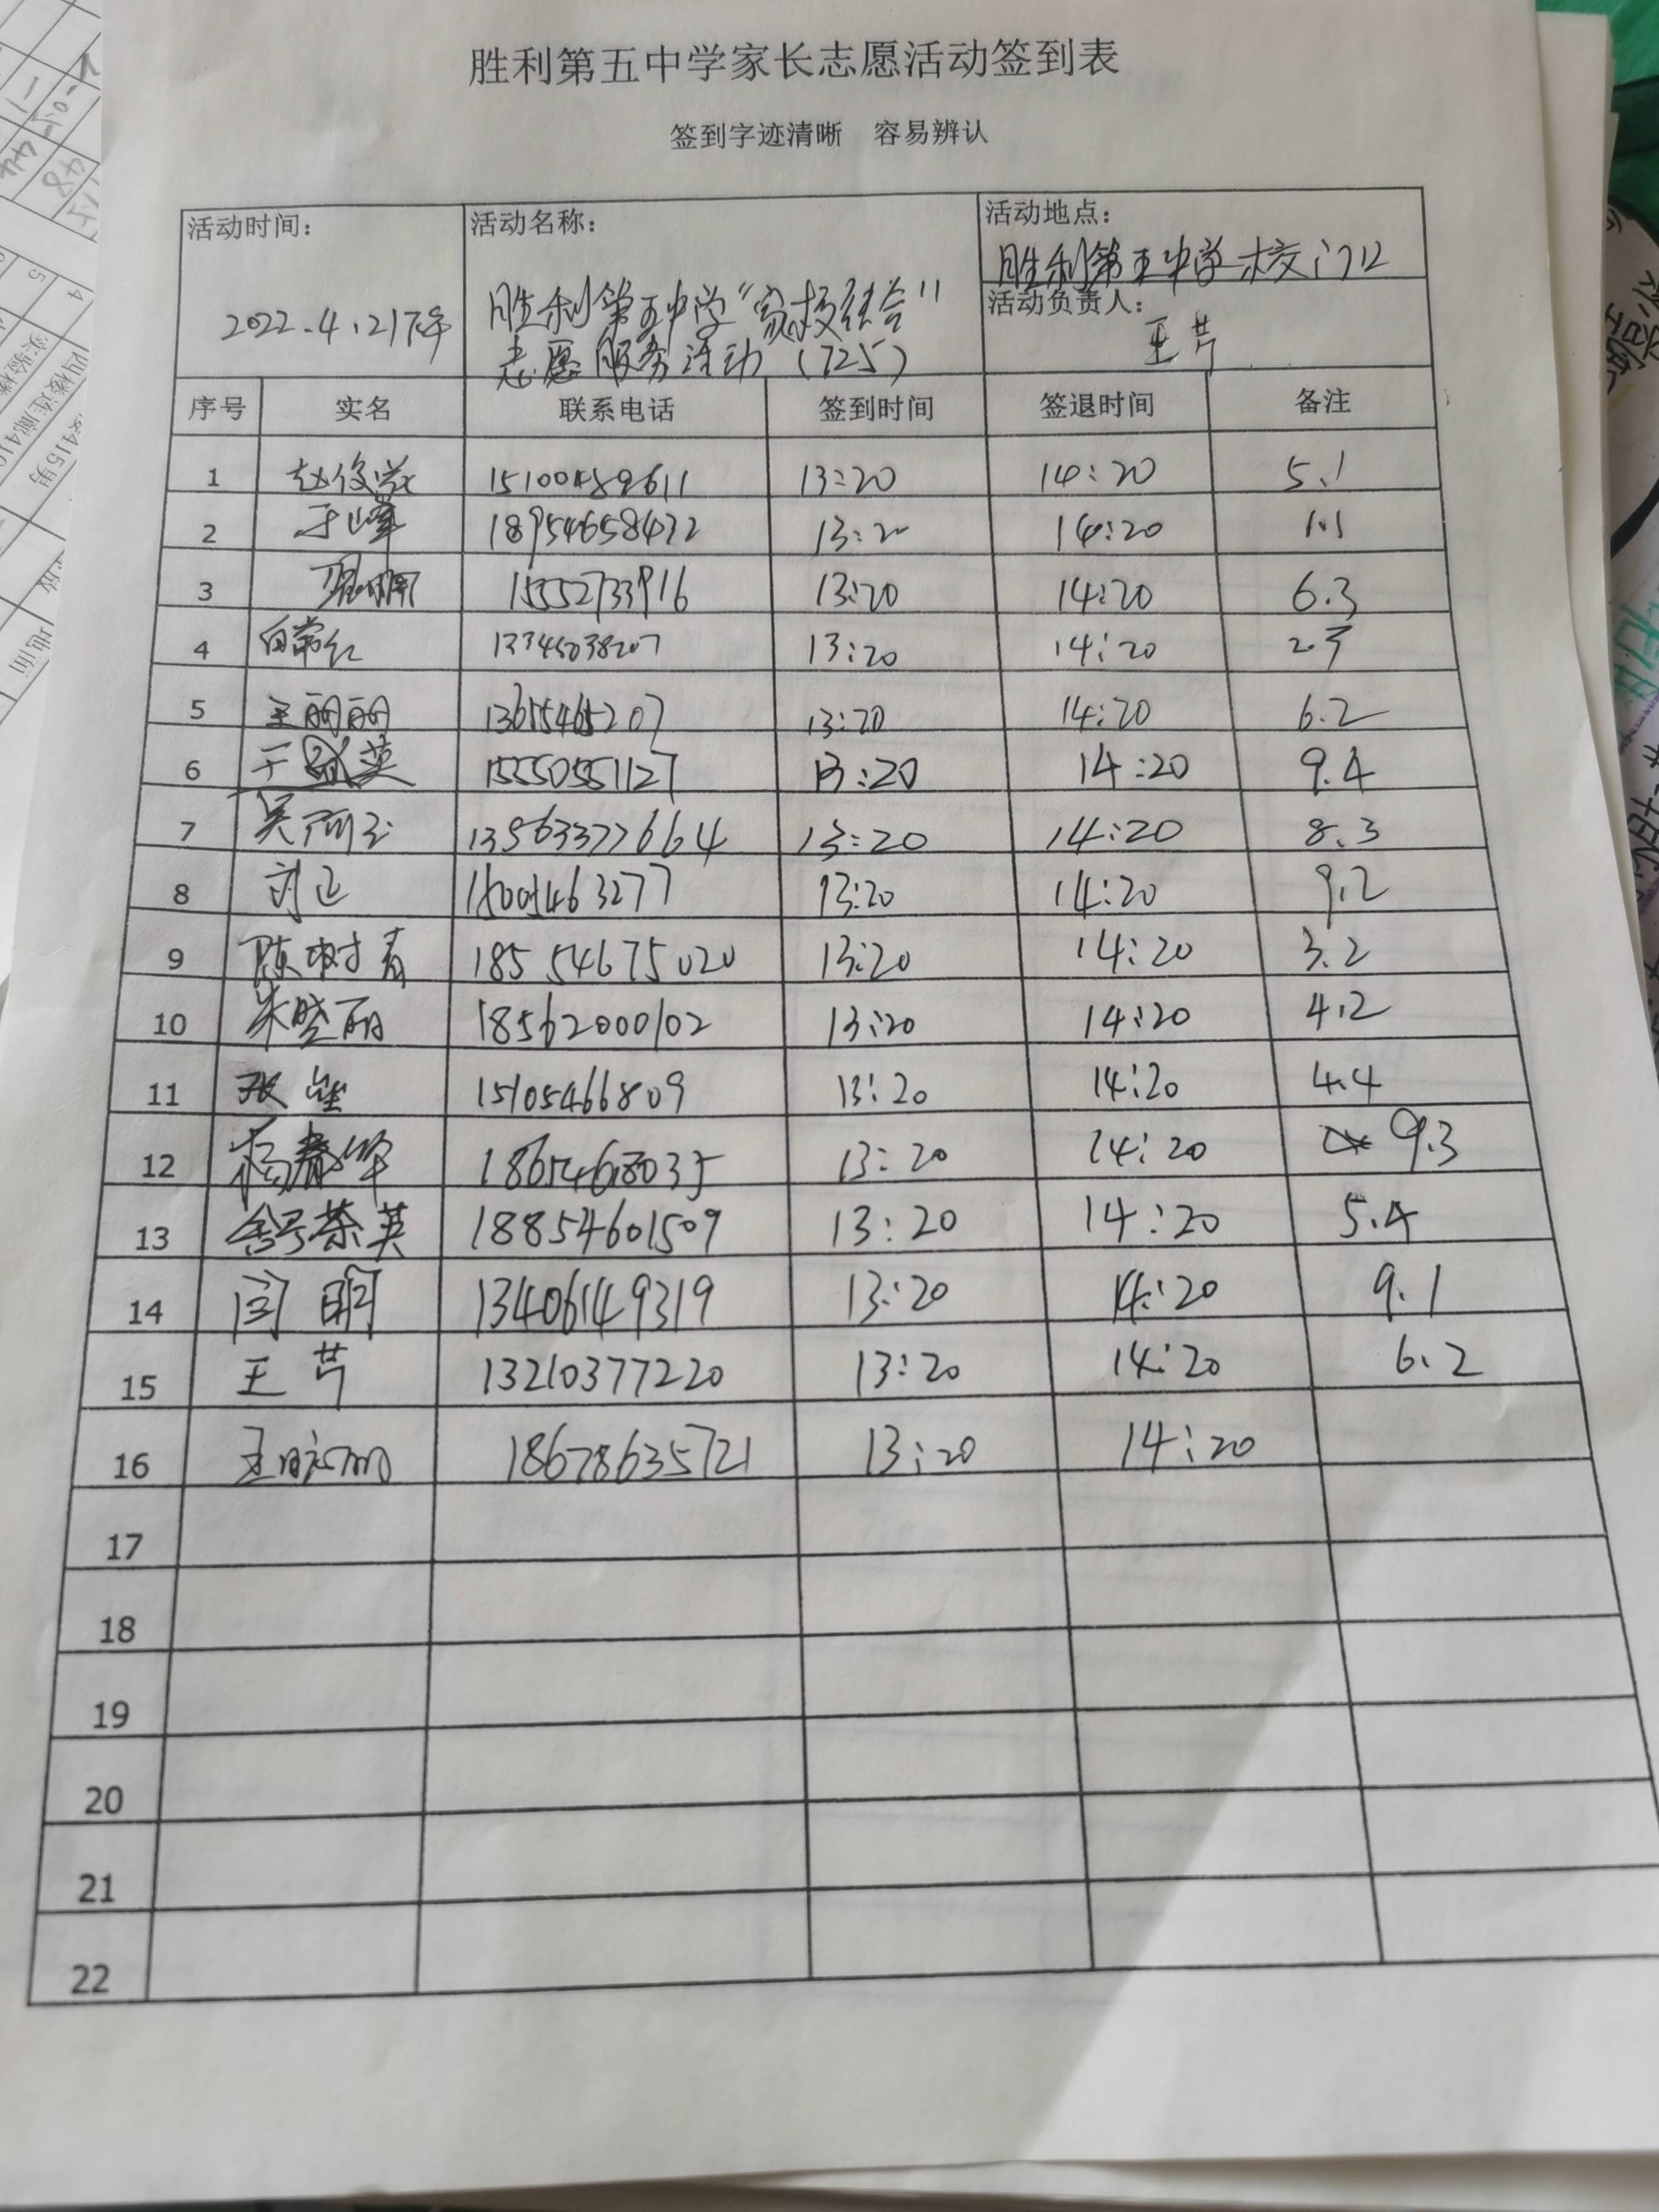 胜利第五中学家长志愿活动签到表
签到字迹清晰 容易辨认
活动时间： 活动名称： 活动地点：
胜利第五中学校门口
2022.4.21下午 胜利第五中学“家校结合” 活动负责人：
志愿服务活动（725） 王芹
序号 实名 联系电话 签到时间 签退时间 备注
1 13:20 14:20 5.1
2 于峰 18954658472 13:20 14:20 1.1
3 15552733916 13:20 14:20 6.3
4 13:20 14:20
5 王丽丽 13655465207 13:20 14:20 6.2
6 15550551127 13:20 14:20 9.4
7 13563377664 13:20 14:20 8.3
8 13:20 14:20 9.2
9 陈树青 18554675020 13:20 14:20 3.2
10 朱晓丽 18562000102 13:20 14:20 4.2
11 15105466809 13:20 14:20 4.4
12 杨春华 13:20 14:20 9.3
13 舒荣英 18854601509 13:20 14:20 5.4
14 闫明 13406149319 13:20 14:20 9.1
15 王芹 13210377220 13:20 14:20 6.2
16 18678635721 13:20 14:20
17
18
19
20
21
22